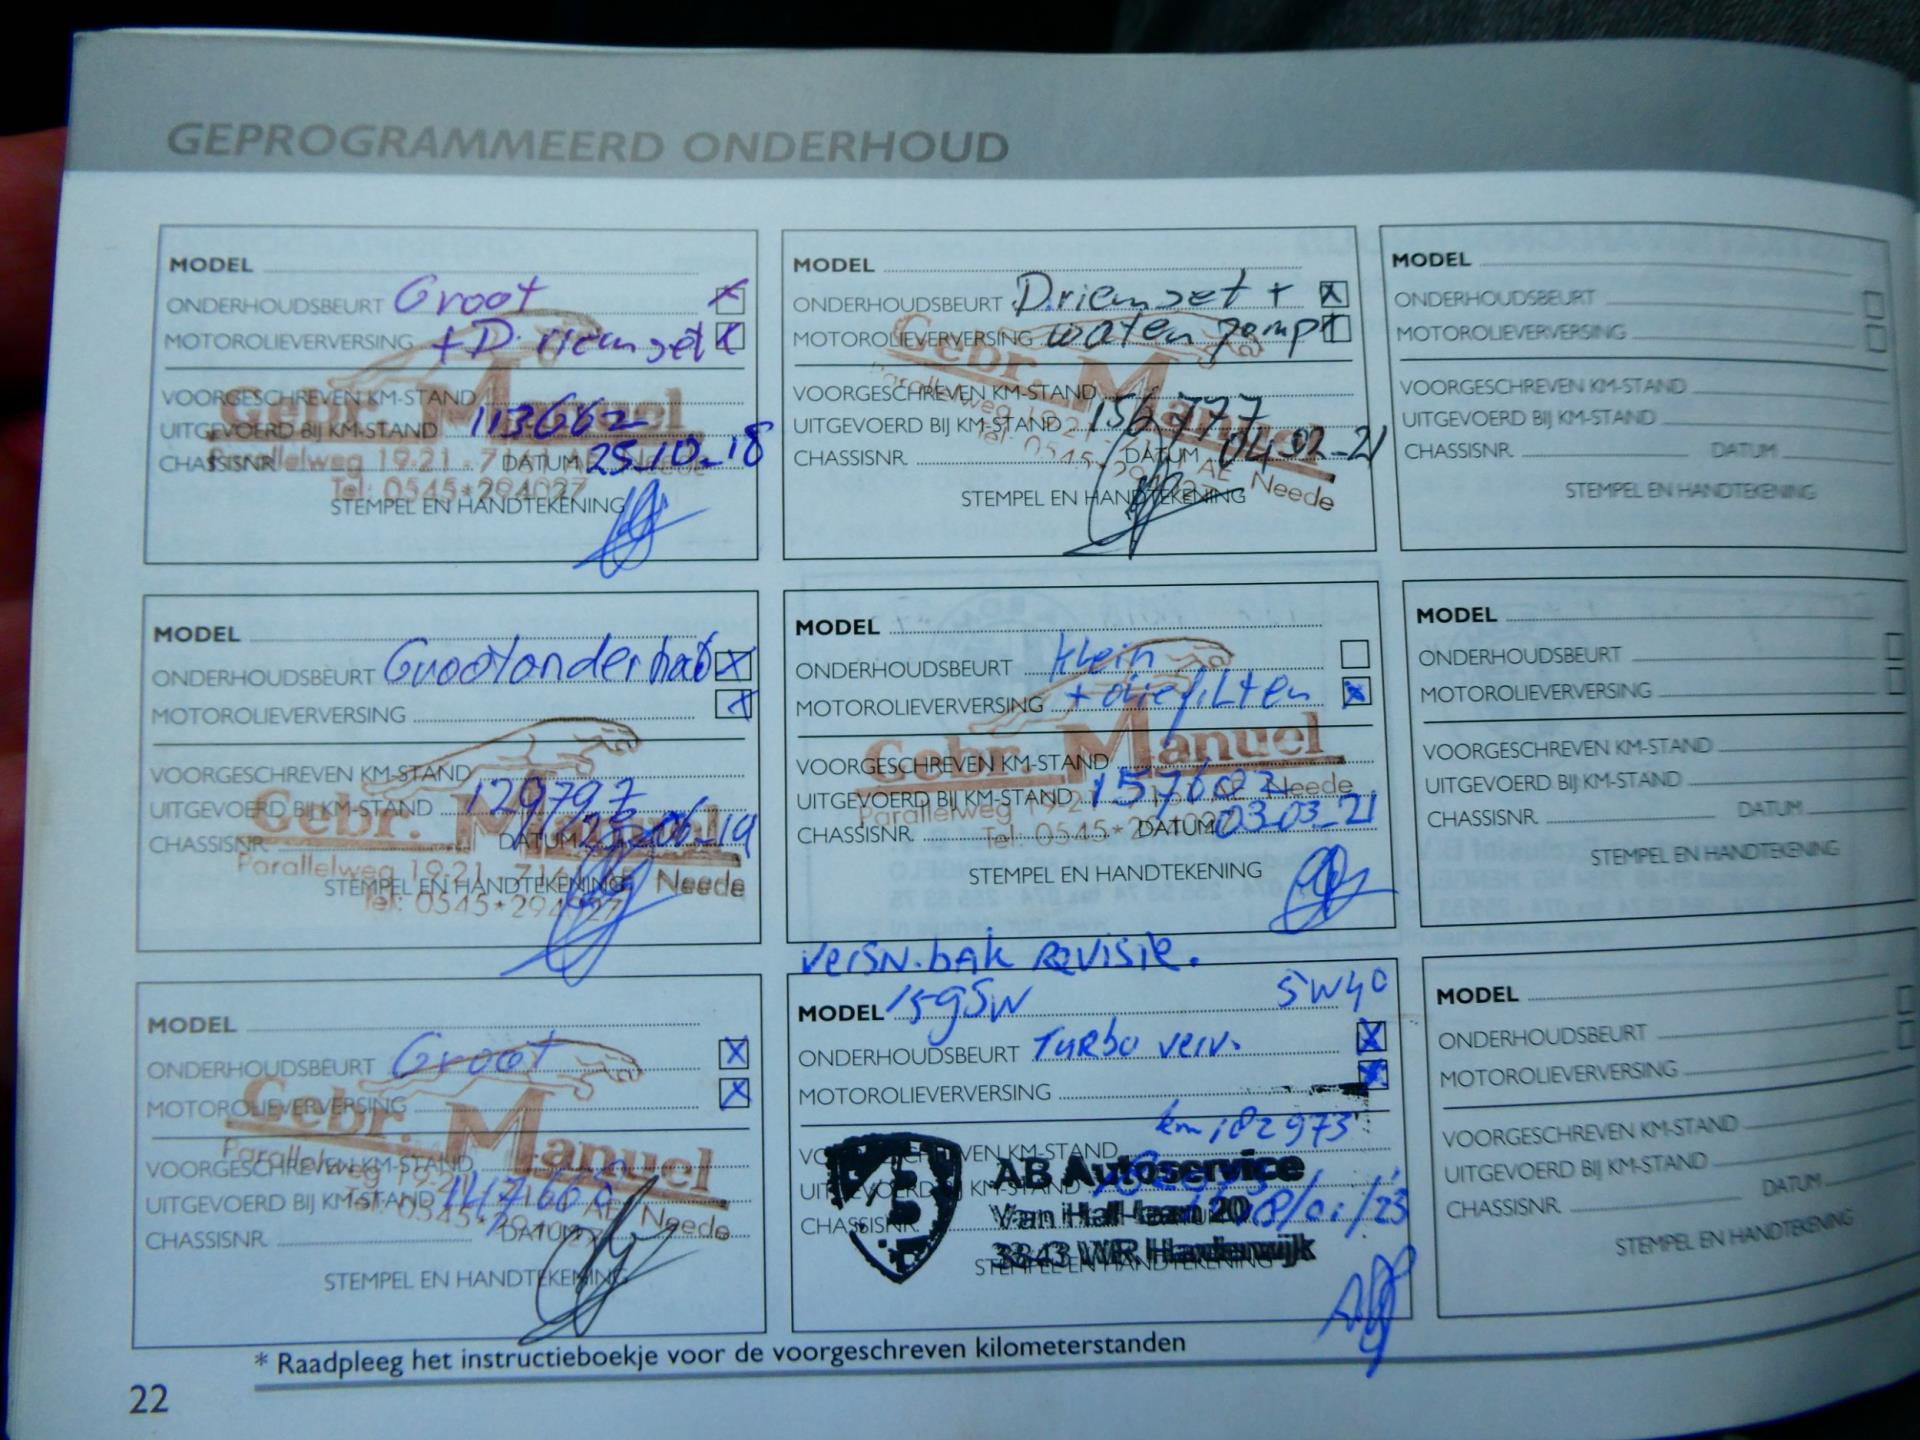 GEPROGRAMMEERD ONDERHOUD
MODEL
ONDERHOUDSBEURT Groot
MOTOROLIEVERVERSING + D.riemset
VOORGESCHREVEN KM-STAND
UITGEVOERD BIJ KM-STAND 113662
CHASSISNR. DATUM 25.10_18
STEMPEL EN HANDTEKENING
Gebr. Manuel
Parallelweg 19-21 - 7161 AE Neede
Tel: 0545*294027
MODEL
ONDERHOUDSBEURT Grootonderhoud
MOTOROLIEVERVERSING
VOORGESCHREVEN KM-STAND
UITGEVOERD BIJ KM-STAND 129797
CHASSISNR. DATUM 06_19
STEMPEL EN HANDTEKENING
Gebr. Manuel
Parallelweg 19-21 7161 AE Neede
Tel: 0545*294027
MODEL
ONDERHOUDSBEURT Groot
MOTOROLIEVERVERSING
VOORGESCHREVEN KM-STAND
UITGEVOERD BIJ KM-STAND
CHASSISNR. DATUM
STEMPEL EN HANDTEKENING
Gebr. Manuel
Parallelweg 19-21 7161 AE Neede
Tel: 0545*294027
MODEL
ONDERHOUDSBEURT D.riemset +
MOTOROLIEVERVERSING waterpomp
VOORGESCHREVEN KM-STAND
UITGEVOERD BIJ KM-STAND 156777
CHASSISNR. DATUM 04_02_21
STEMPEL EN HANDTEKENING
Gebr. Manuel
Parallelweg 19-21 7161 AE Neede
Tel: 0545*294027
MODEL
ONDERHOUDSBEURT klein
MOTOROLIEVERVERSING + oliefilter
VOORGESCHREVEN KM-STAND
UITGEVOERD BIJ KM-STAND 157602
CHASSISNR. DATUM 03.03_21
STEMPEL EN HANDTEKENING
Gebr. Manuel
Parallelweg 19-21 7161 AE Neede
Tel: 0545*294027
versn.bak revisie.
MODEL 5W40
ONDERHOUDSBEURT Turbo verv.
MOTOROLIEVERVERSING
km 182973
VOORGESCHREVEN KM-STAND
UITGEVOERD BIJ KM-STAND
CHASSISNR. 18/01/23
STEMPEL EN HANDTEKENING
AB Autoservice
Van Hall-laan 20
3843 WR Harderwijk
MODEL
ONDERHOUDSBEURT
MOTOROLIEVERVERSING
VOORGESCHREVEN KM-STAND
UITGEVOERD BIJ KM-STAND
CHASSISNR. DATUM
STEMPEL EN HANDTEKENING
MODEL
ONDERHOUDSBEURT
MOTOROLIEVERVERSING
VOORGESCHREVEN KM-STAND
UITGEVOERD BIJ KM-STAND
CHASSISNR. DATUM
STEMPEL EN HANDTEKENING
MODEL
ONDERHOUDSBEURT
MOTOROLIEVERVERSING
VOORGESCHREVEN KM-STAND
UITGEVOERD BIJ KM-STAND
CHASSISNR. DATUM
STEMPEL EN HANDTEKENING
* Raadpleeg het instructieboekje voor de voorgeschreven kilometerstanden
22